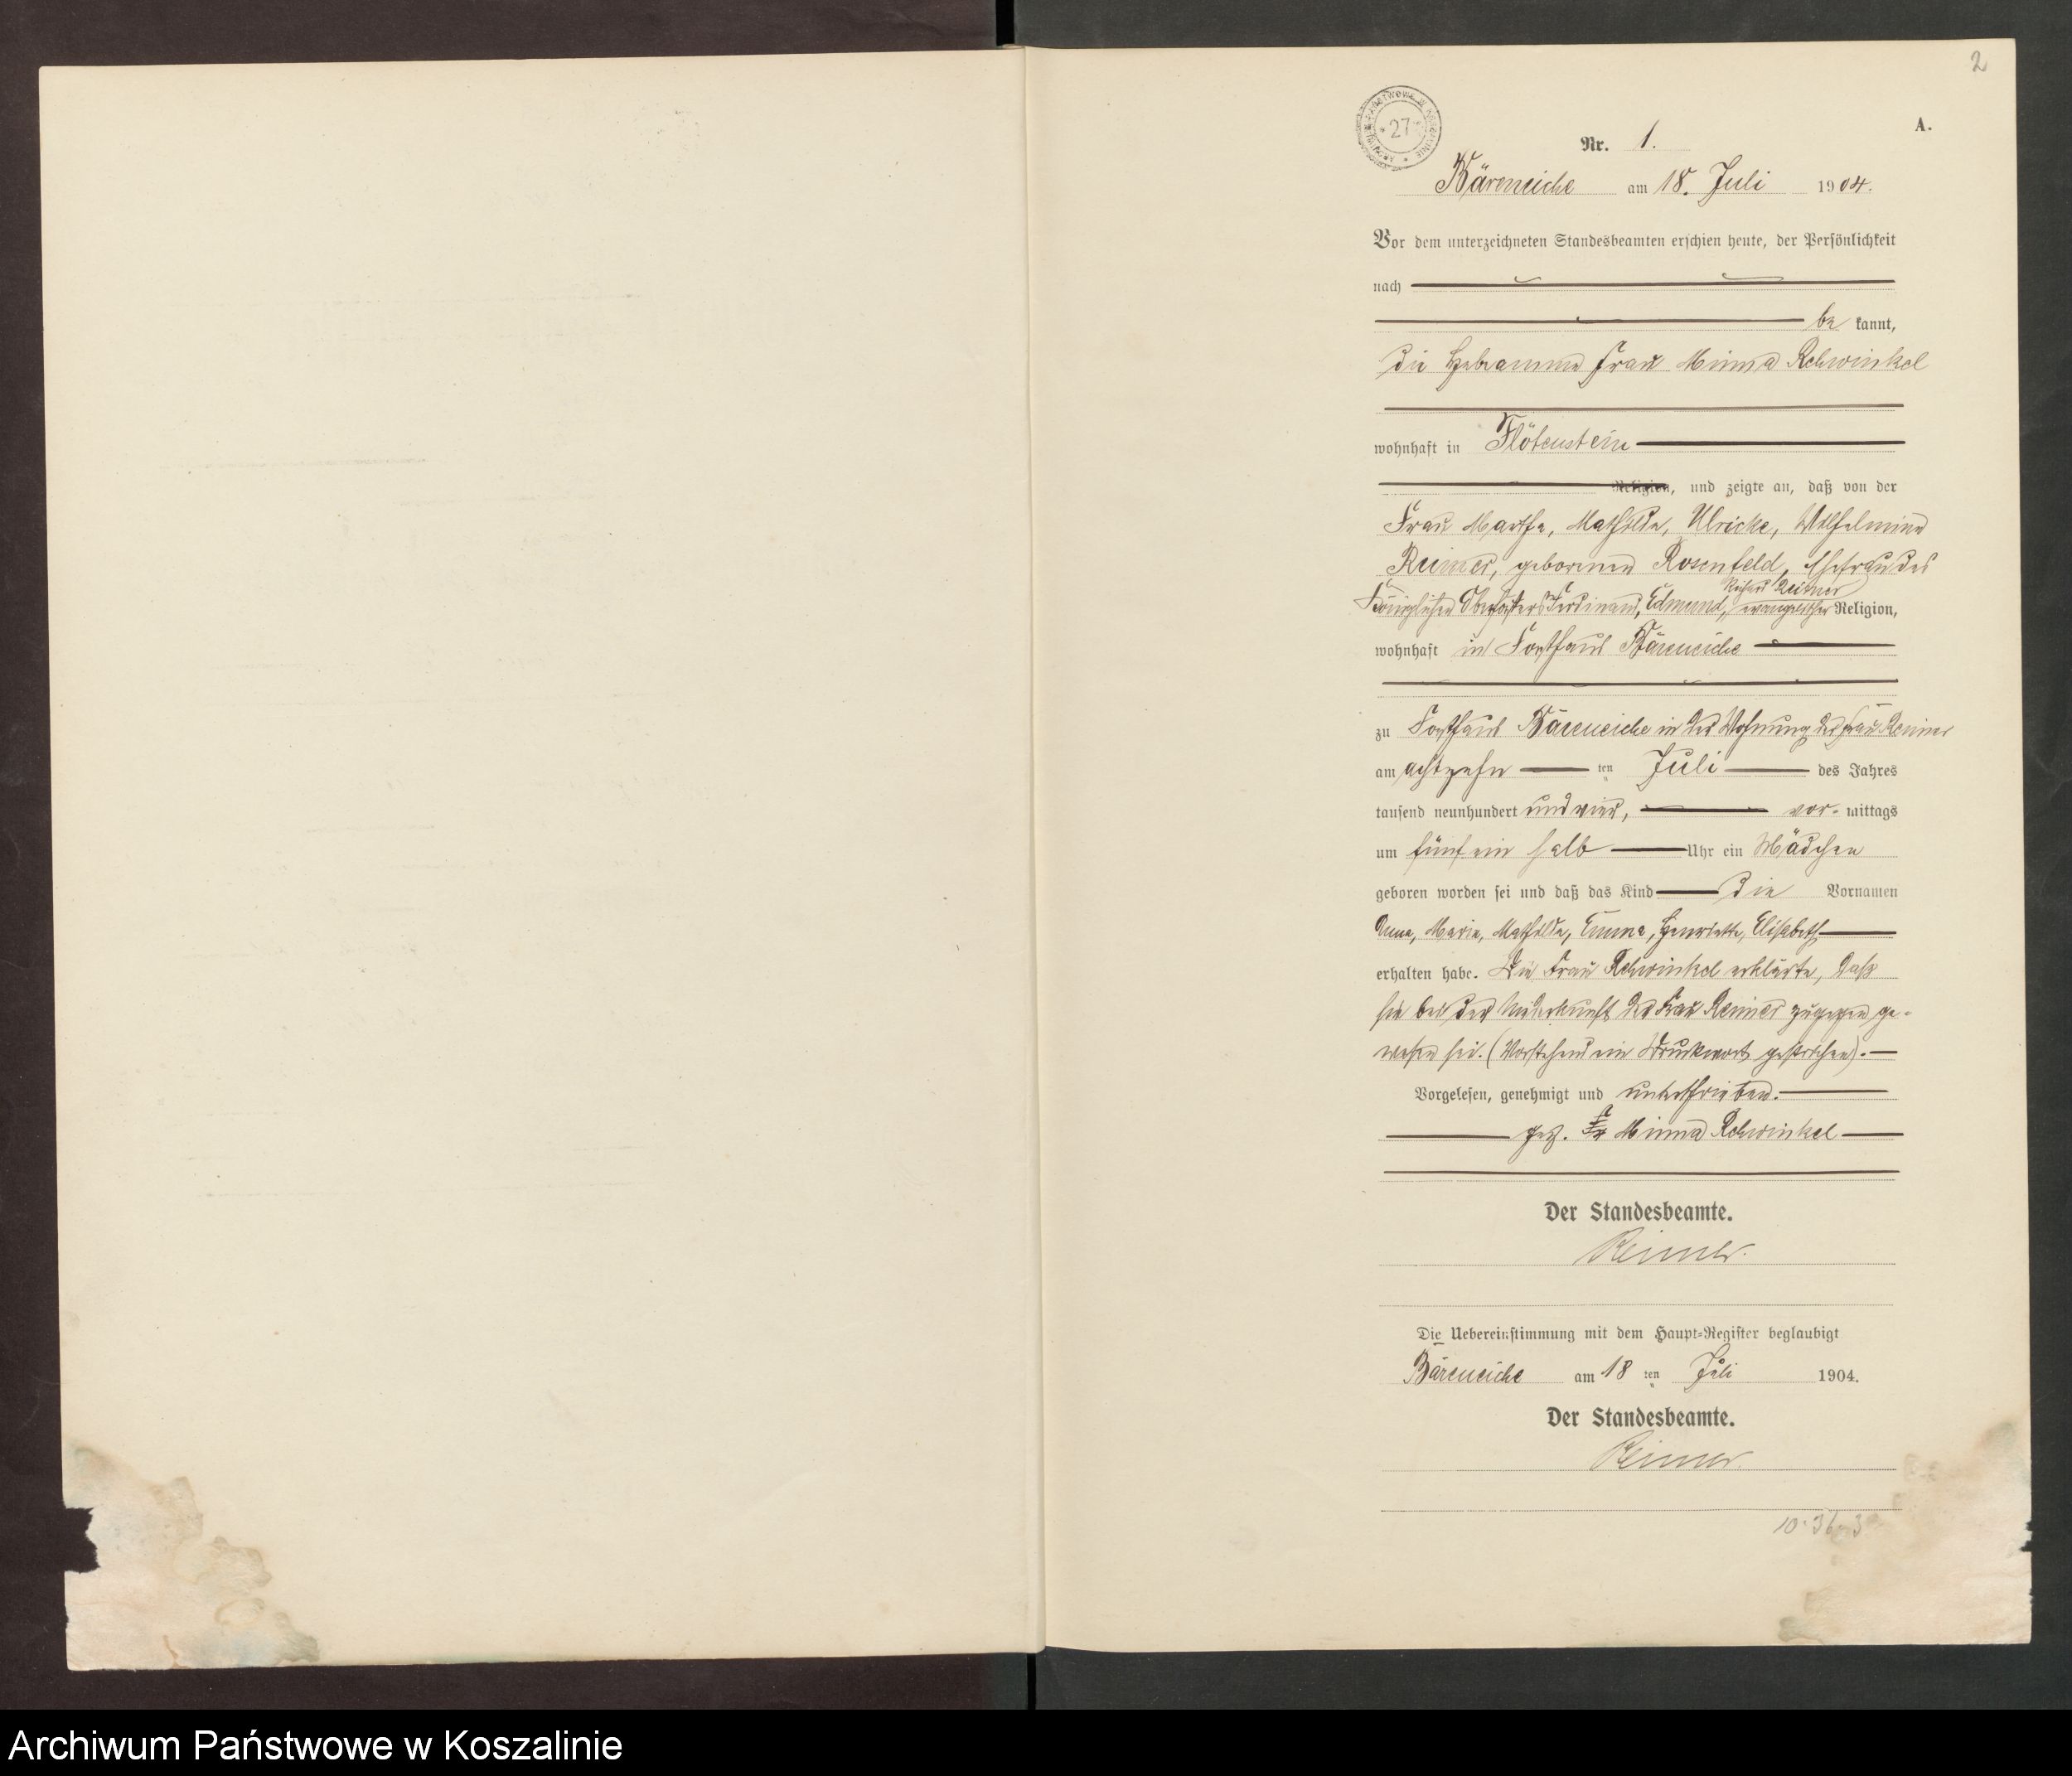 2
A.
27
Nr. 1.
Bäreneiche am 18. Juli 1904.
Vor dem unterzeichneten Standesbeamten erschien heute, der Persönlichkeit
nach
be kannt,
die Hebamme Frau Minna Rehwinkel
wohnhaft in Flötenstein
Religion, und zeigte an, daß von der
Frau Martha, Mathilde, Ulricke, Wilhelmine
Reimer, geborenen Rosenfeld, Ehefrau des
Königlichen Oberförsters Ferdinand, Edmund, Richard Reimer evangelischer Religion,
wohnhaft in Forsthaus Bäreneiche
zu Forsthaus Bäreneiche in der Wohnung der Frau Reimer
am achtzehn ten Juli des Jahres
tausend neunhundert und vier, vor- mittags
um fünf ein halb Uhr ein Mädchen
geboren worden sei und daß das Kind die Vornamen
Anna, Marie, Mathilde, Emma, Henriette, Elisabeth
erhalten habe. Die Frau Rehwinkel erklärte, daß
sie bei der Niederkunft der Frau Reimer zugegen ge-
wesen sei. (Vorstehend ein Druckwort gestrichen).
Vorgelesen, genehmigt und unterschrieben.
gez. Minna Rehwinkel
Der Standesbeamte.
Reimer.
Die Uebereinstimmung mit dem Haupt-Register beglaubigt
Bäreneiche am 18 ten Juli 1904.
Der Standesbeamte.
Reimer.
Archiwum Państwowe w Koszalinie